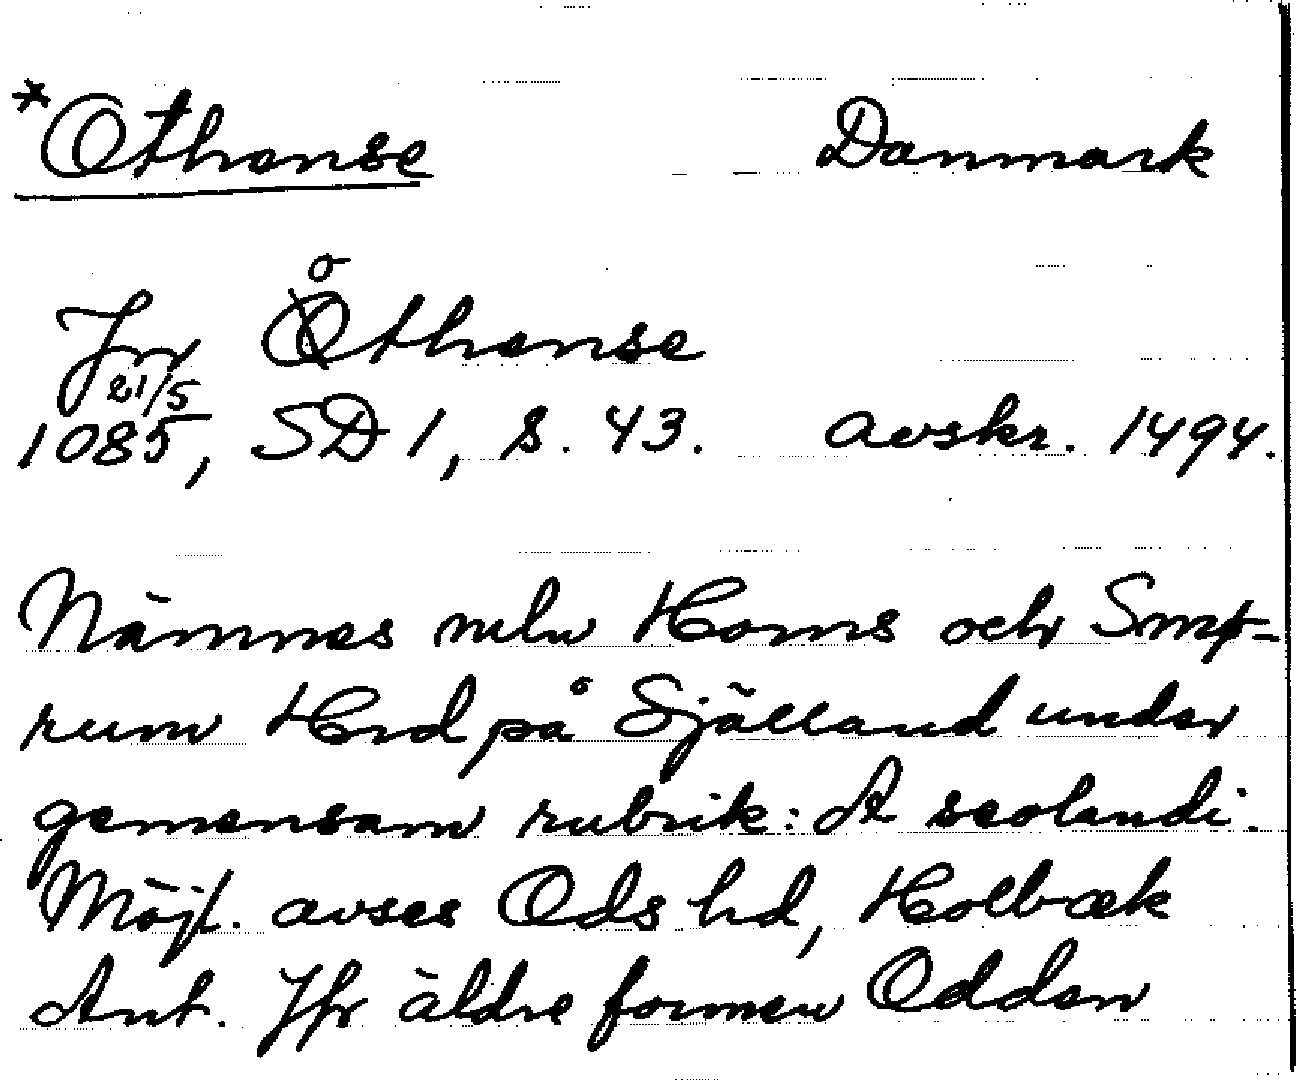 *Othense Danmark
o
Jnr Othense
21/5
1085, SD 1, s. 43. avskr. 1494.
Nämnes mln Horns och Smø-
rum Hrd på Själland under
gemensam rubrik: A seolandi.
Möjl. avses Ods hd, Holbæk
Amt. Jfr äldre formen Odden